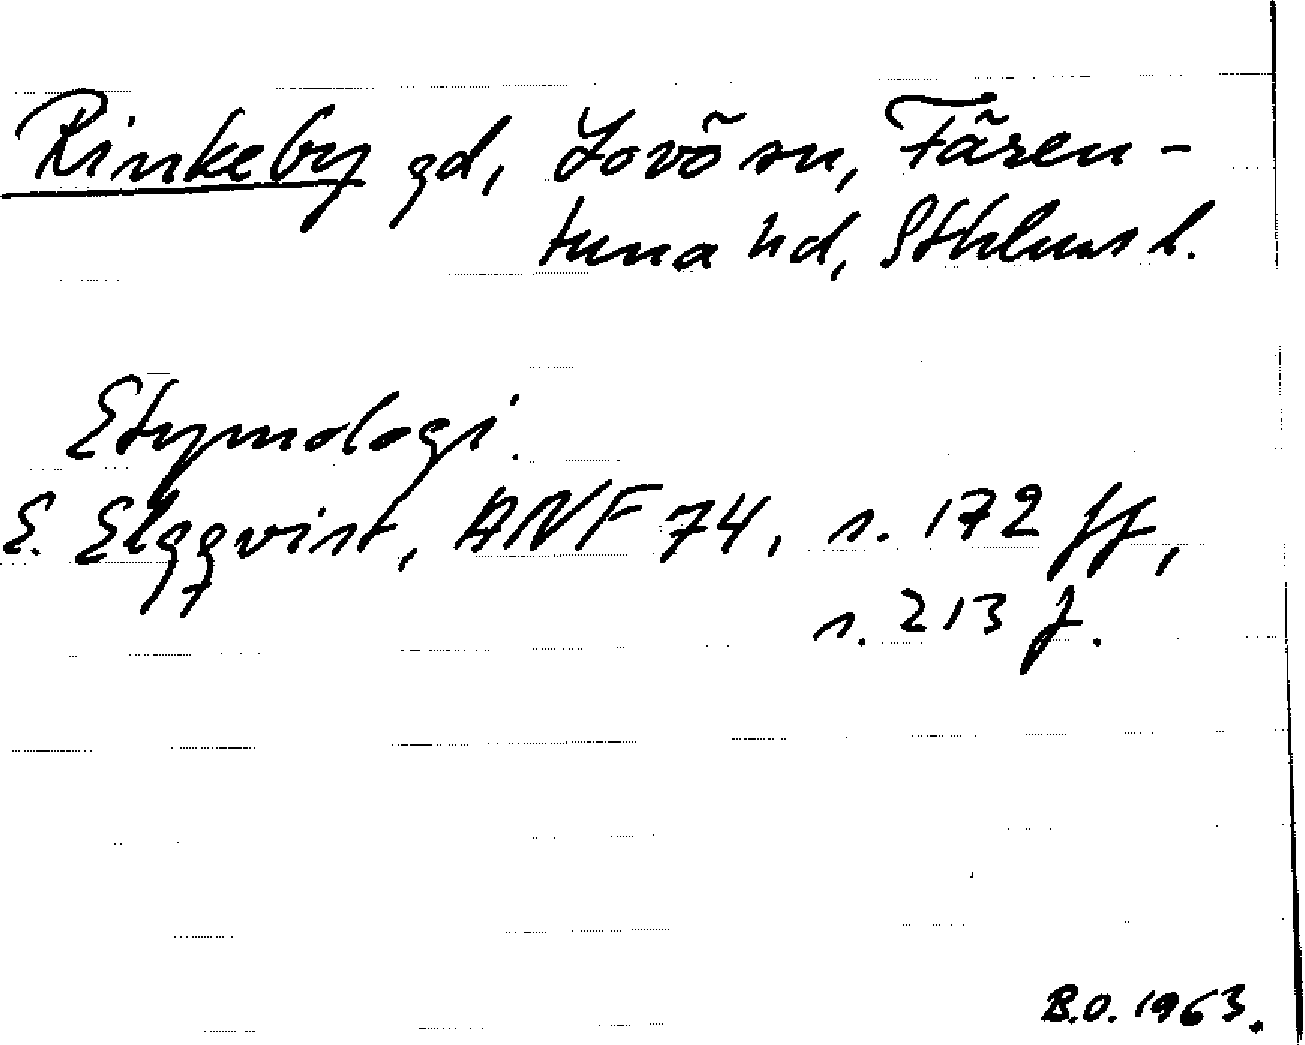 Rinkeby gd, Lovö sn, Fären-
tuna hd, Sthlms l.
Etymologi.
E. Elgqvist, ANF 74, s. 172 ff,
s. 213 f.
B.O. 1963.